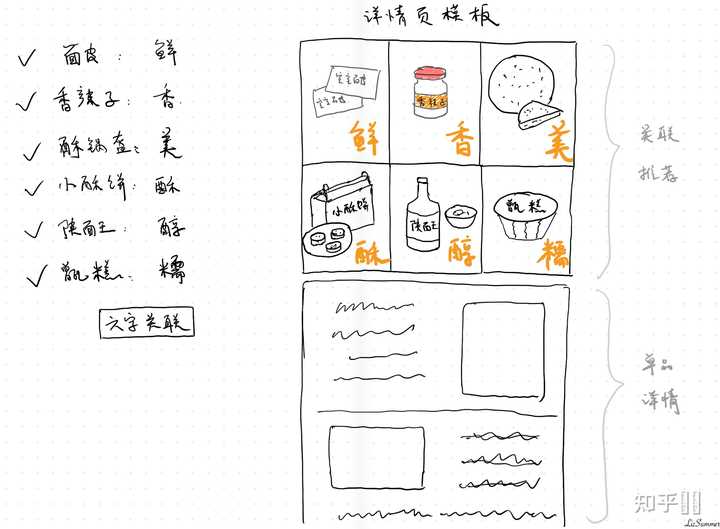 详情页模板
✓ 面皮: 鲜
✓ 香辣子: 香
✓ 酥锅盔: 美
✓ 小酥饼: 酥
✓ 陕面王: 醇
✓ 甑糕: 糯
六字关联
鲜
香辣子
香
美
小酥饼
酥
陕面王
醇
甑糕
糯
关联
推荐
单品
详情
知乎
LicSummer